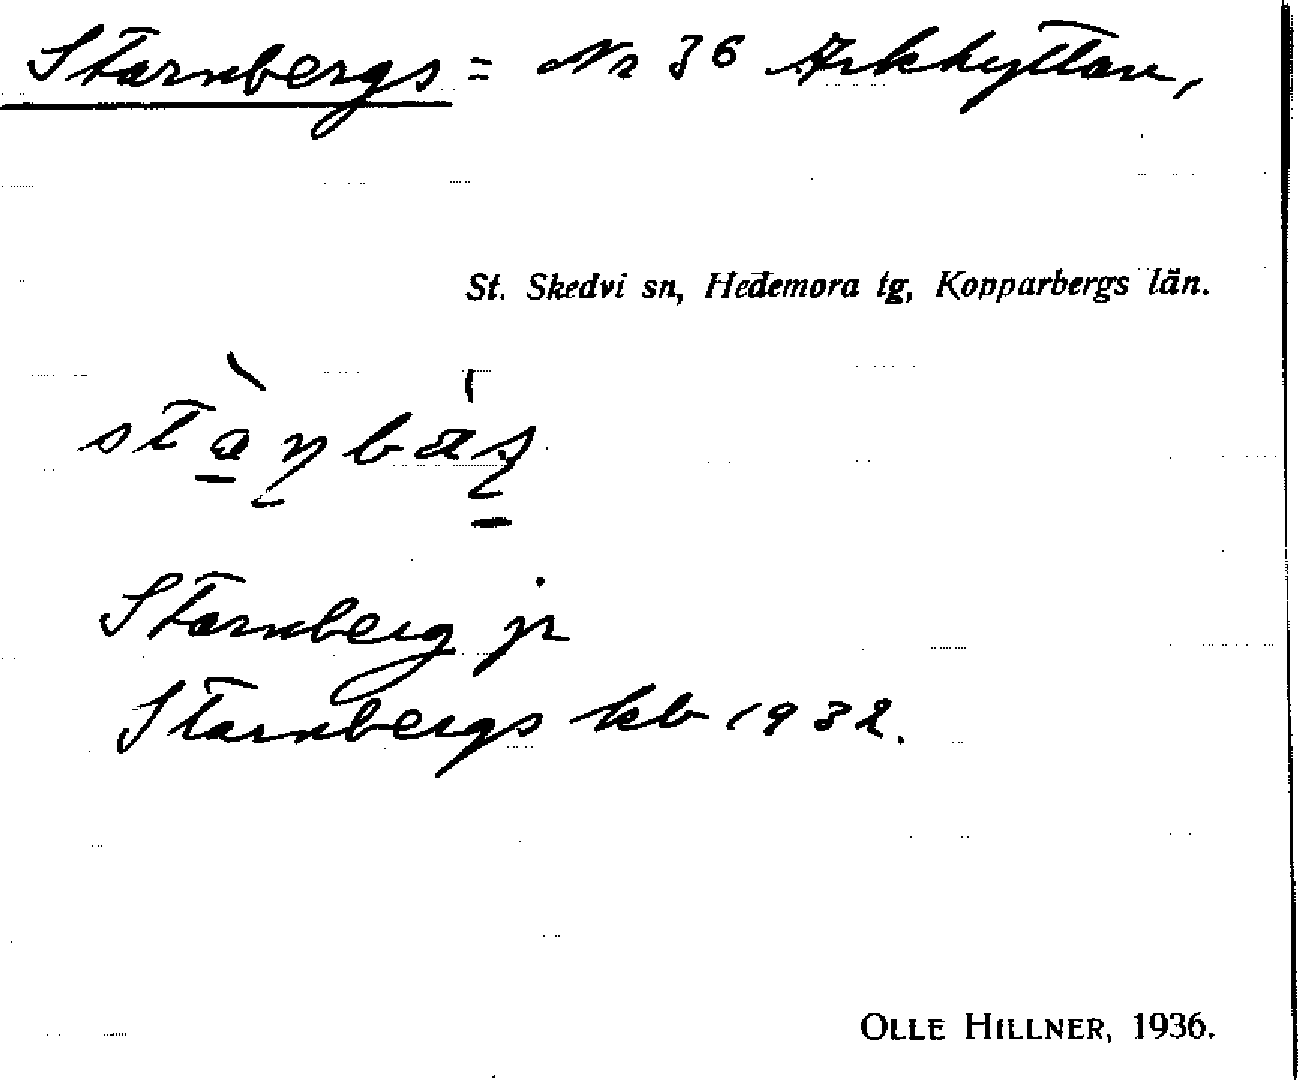 Starnbergs = Nr 36 Arkhyttan,
St. Skedvi sn, Hedemora tg, Kopparbergs län.
Starnberg jr
Starnbergs kb 1932.
OLLE HILLNER, 1936.